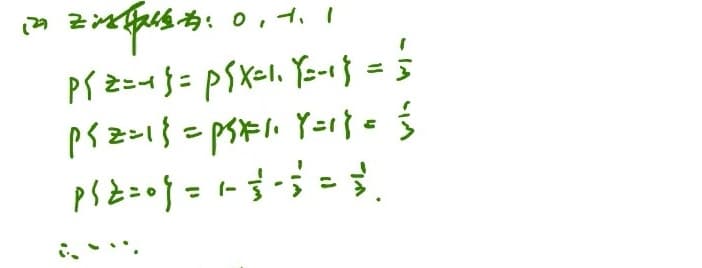 (2) Z的取值为: 0, -1, 1
P{Z=-1}=P{X=1, Y=-1} = 1/3
P{Z=1} = P{X=1, Y=1} = 1/3
P{Z=0} = 1- 1/3 - 1/3 = 1/3.
∴ ....